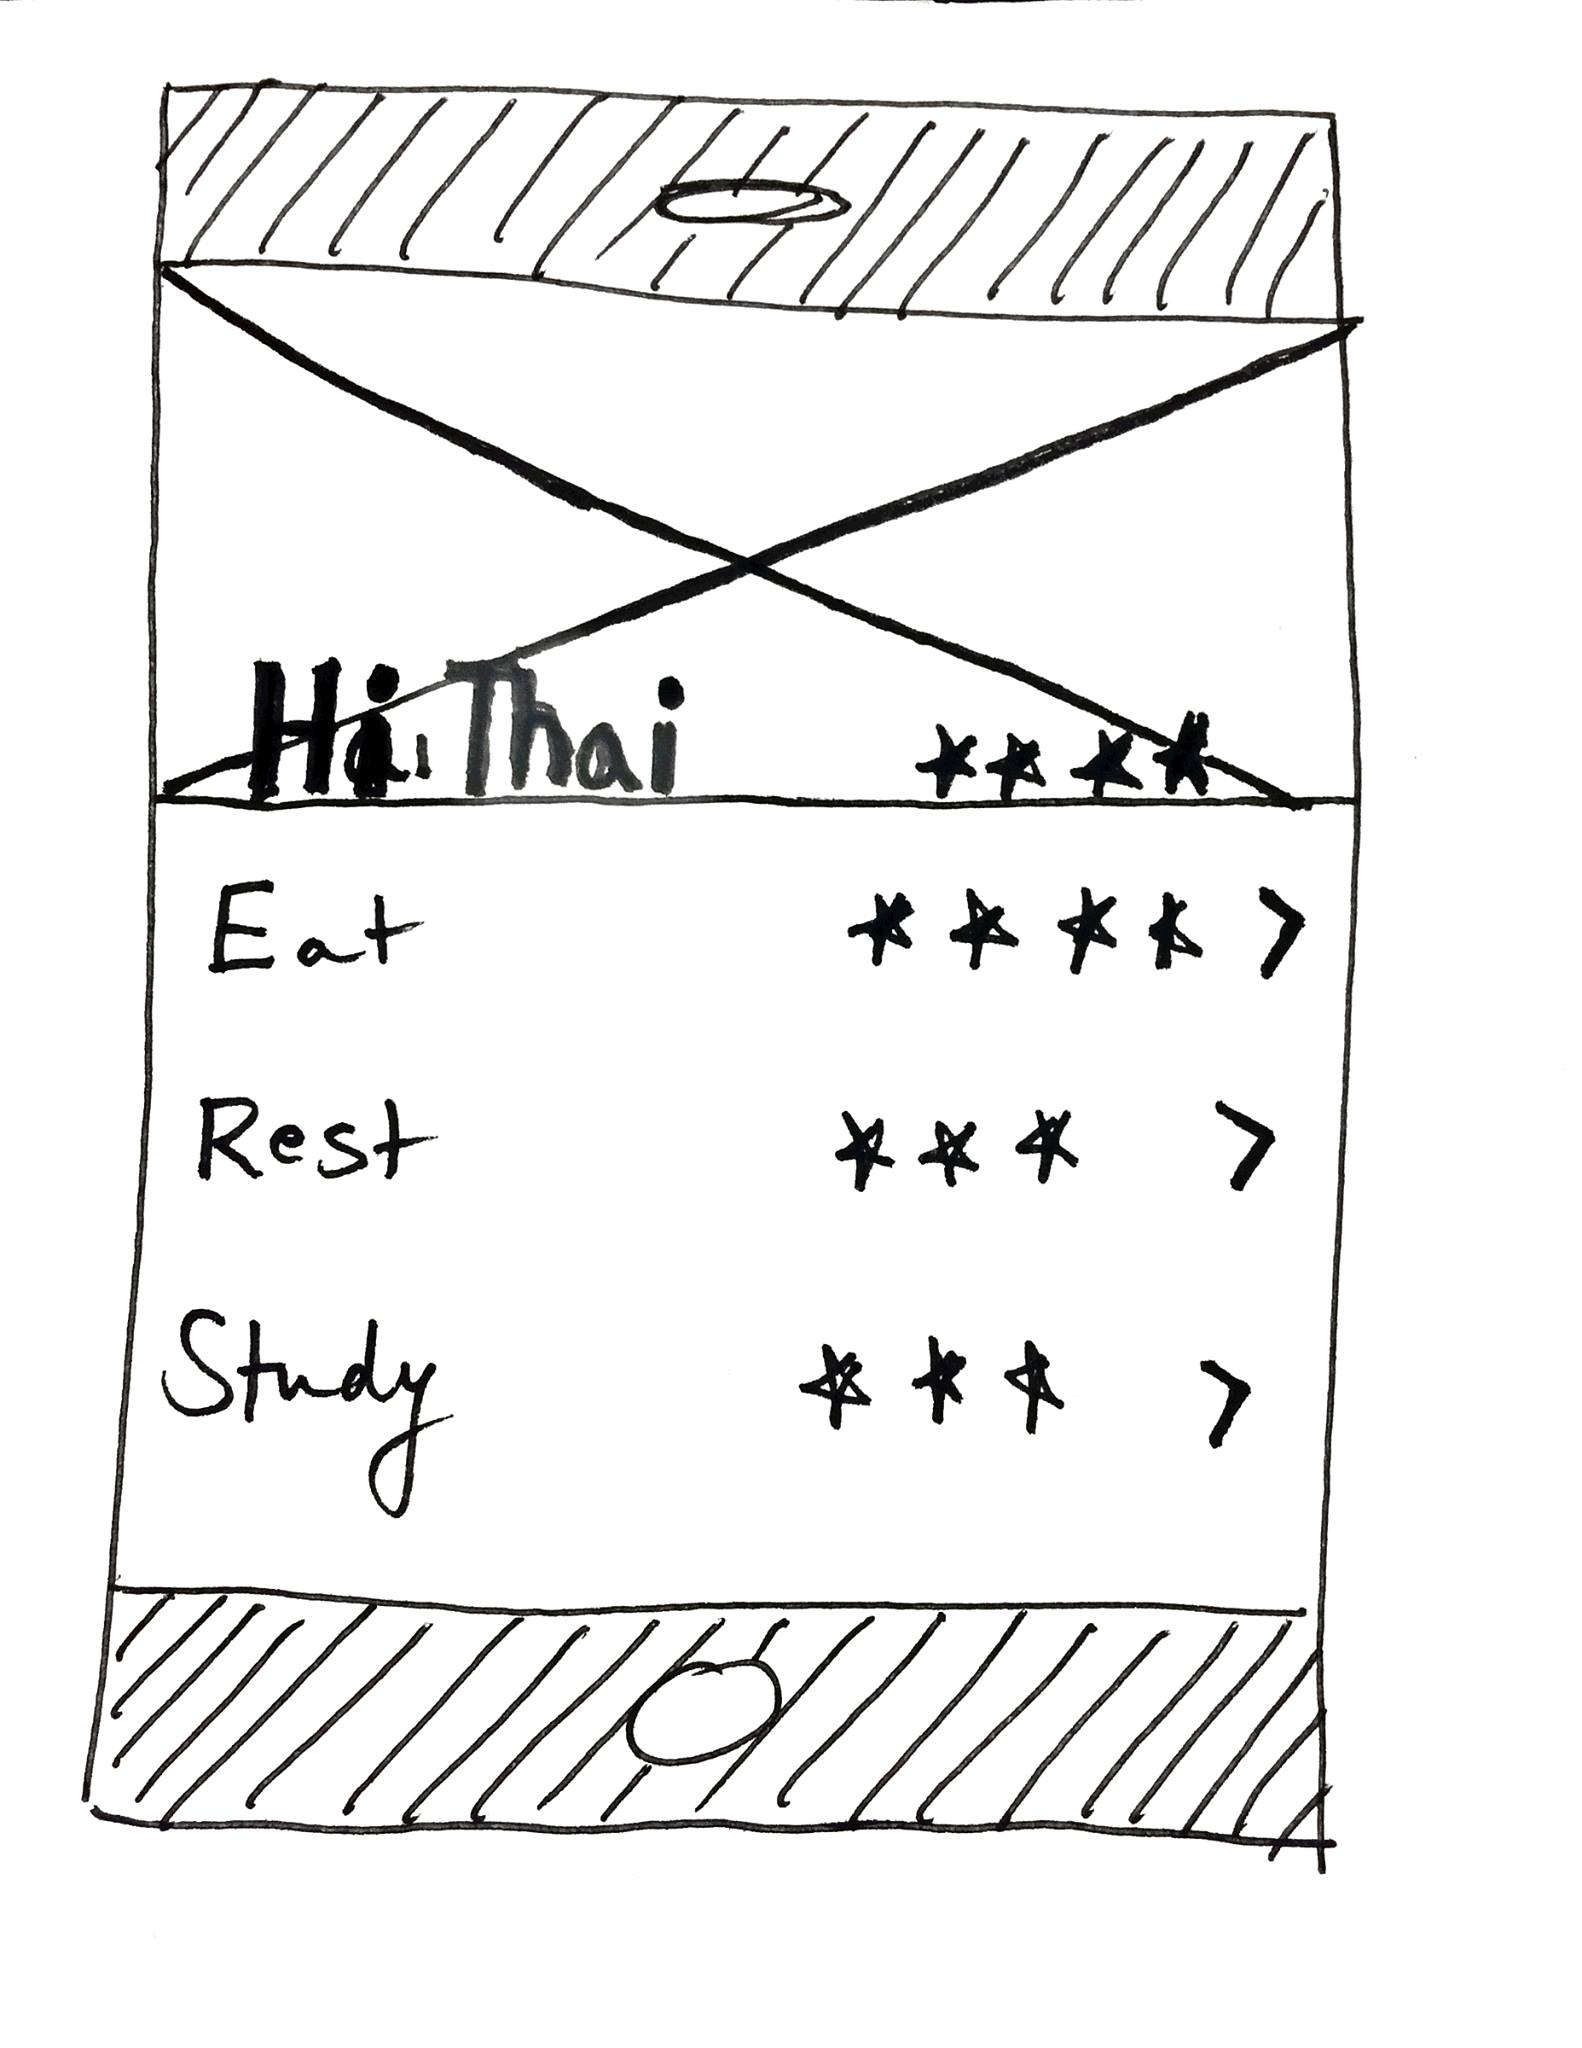 Hi, Thai
Eat
Rest
Study